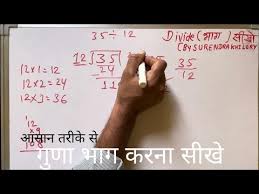 35 ÷ 12
Divide (भाग) सीखें
(BY SURENDRA KHILERY
12 ) 35 (
24
11
35
12
12 x 1 = 12
12 x 2 = 24
12 x 3 = 36
12
x 9
108
आसान तरीके से
गुणा भाग करना सीखे